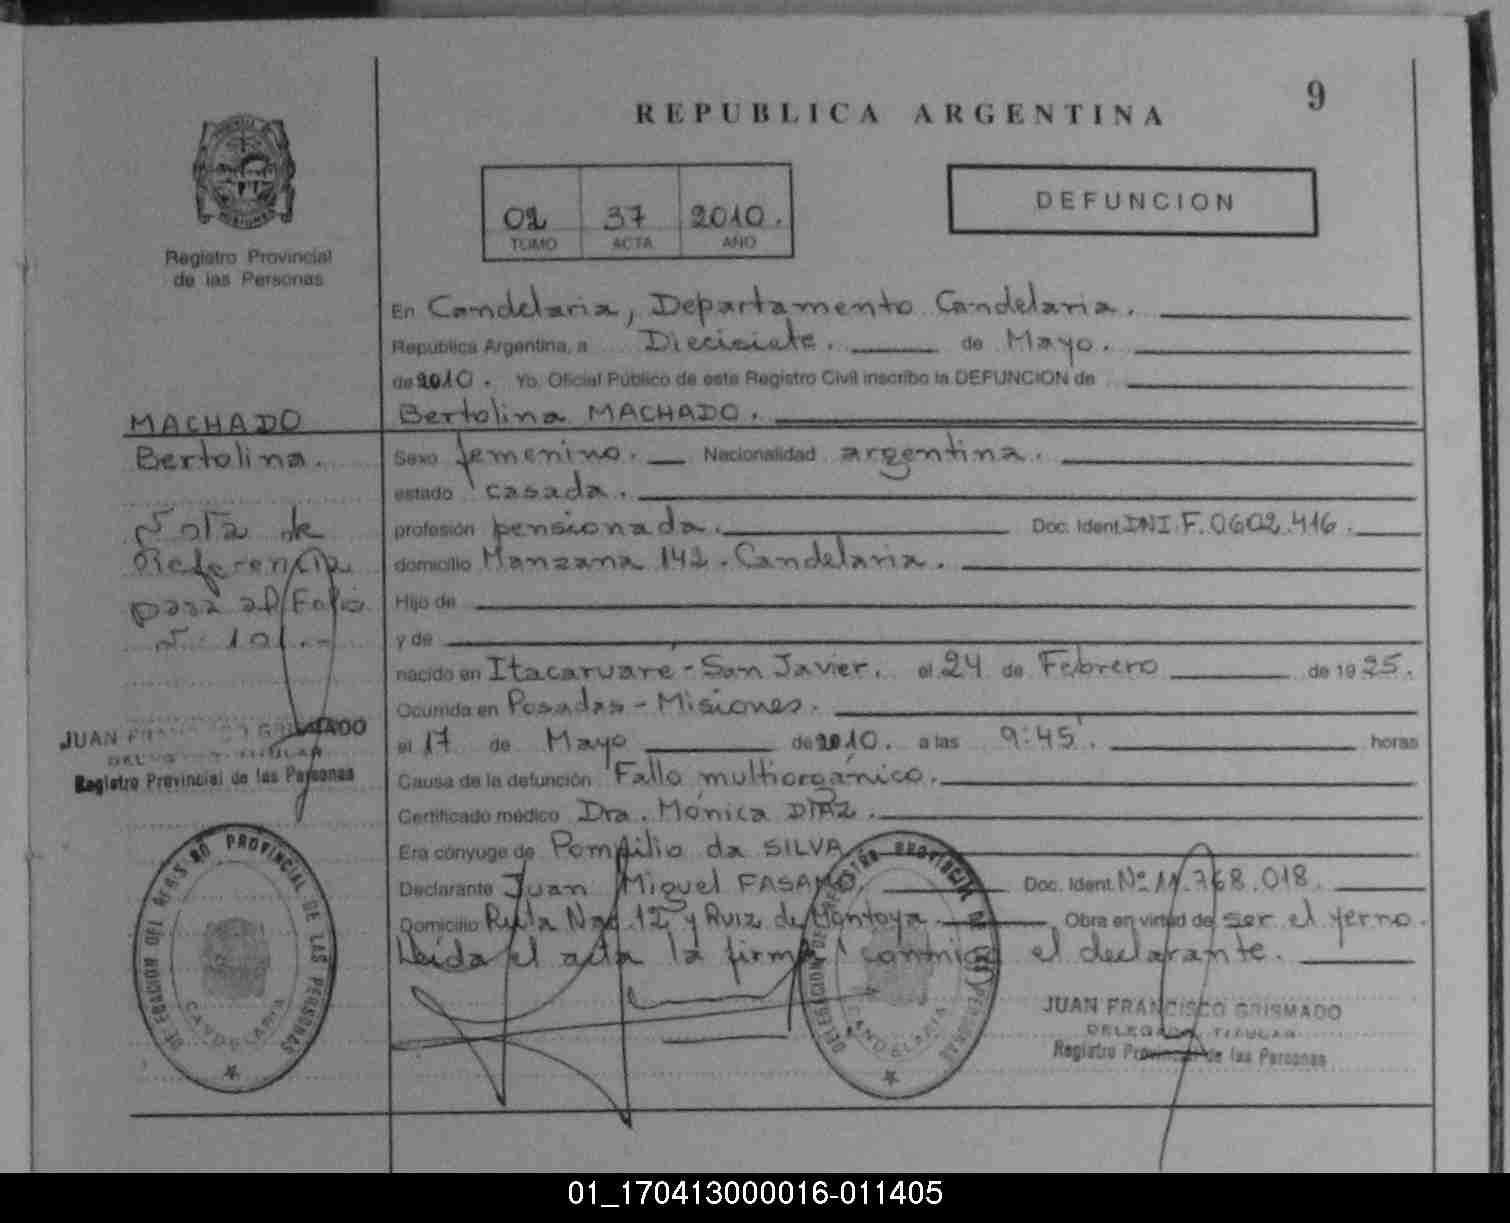 9
REPUBLICA ARGENTINA
DEFUNCION
02 37 2010.
TOMO ACTA AÑO
Registro Provincial
de las Personas
En Candelaria, Departamento Candelaria.
República Argentina, a Diecisiete. de Mayo.
de 2010. Yo, Oficial Público de este Registro Civil inscribo la DEFUNCION de
MACHADO
Bertolina MACHADO.
Bertolina.
Sexo femenino. Nacionalidad argentina.
estado casada.
Nota de
Referencia
pasa al Folio
N: 101.-
profesión pensionada. Doc. Ident. DNI.F.0602.416.
domicilio Manzana 142. Candelaria.
Hijo de
y de
nacido en Itacaruaré-San Javier. el 24 de Febrero de 1925.
Ocurrida en Posadas-Misiones.
el 17 de Mayo de 2010. a las 9:45'. horas
JUAN FRANCISCO GRISMADO
DELEGADO TITULAR
Registro Provincial de las Personas
Causa de la defunción Fallo multiorgánico.
Certificado médico Dra. Mónica DIAZ.
Era cónyuge de Pompilio da SILVA
Declarante Juan Miguel FASANO. Doc. Ident. Nº 11.768.018.
Domicilio Ruta Nac. 12 y Ruiz de Montoya. Obra en virtud de ser el yerno.
Leída el acta la firma conmigo el declarante.
DELEGACION DEL REGISTRO PROVINCIAL DE LAS PERSONAS
CANDELARIA
DELEGACION DEL REGISTRO PROVINCIAL DE LAS PERSONAS
CANDELARIA
JUAN FRANCISCO GRISMADO
DELEGADO TITULAR
Registro Provincial de las Personas
01_170413000016-011405